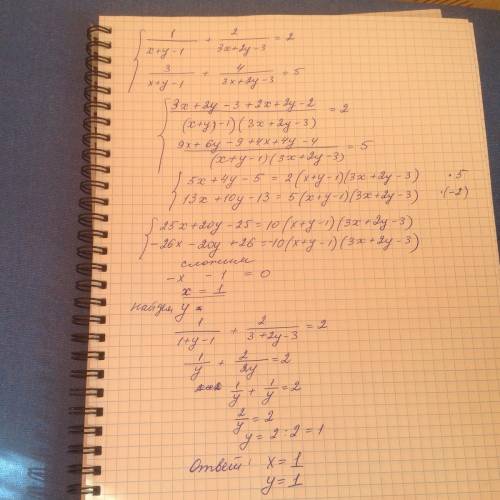 1/(x+y-1) + 2/(3x+2y-3) = 2
3/(x+y-1) + 4/(3x+2y-3) = 5
(3x+2y-3+2x+2y-2)/((x+y)-1)(3x+2y-3) = 2
(9x+6y-9+4x+4y-4)/((x+y-1)(3x+2y-3)) = 5
5x+4y-5 = 2(x+y-1)(3x+2y-3) ·5
13x+10y-13 = 5(x+y-1)(3x+2y-3) ·(-2)
25x+20y-25=10(x+y-1)(3x+2y-3)
-26x-20y+26=-10(x+y-1)(3x+2y-3)
сложим
-x -1 = 0
x = 1
найдем y =
1/(1+y-1) + 2/(3+2y-3) = 2
1/y + 2/2y = 2
1/y + 1/y = 2
2/y = 2
y = 2·2 = 1
Ответ: x=1
y=1